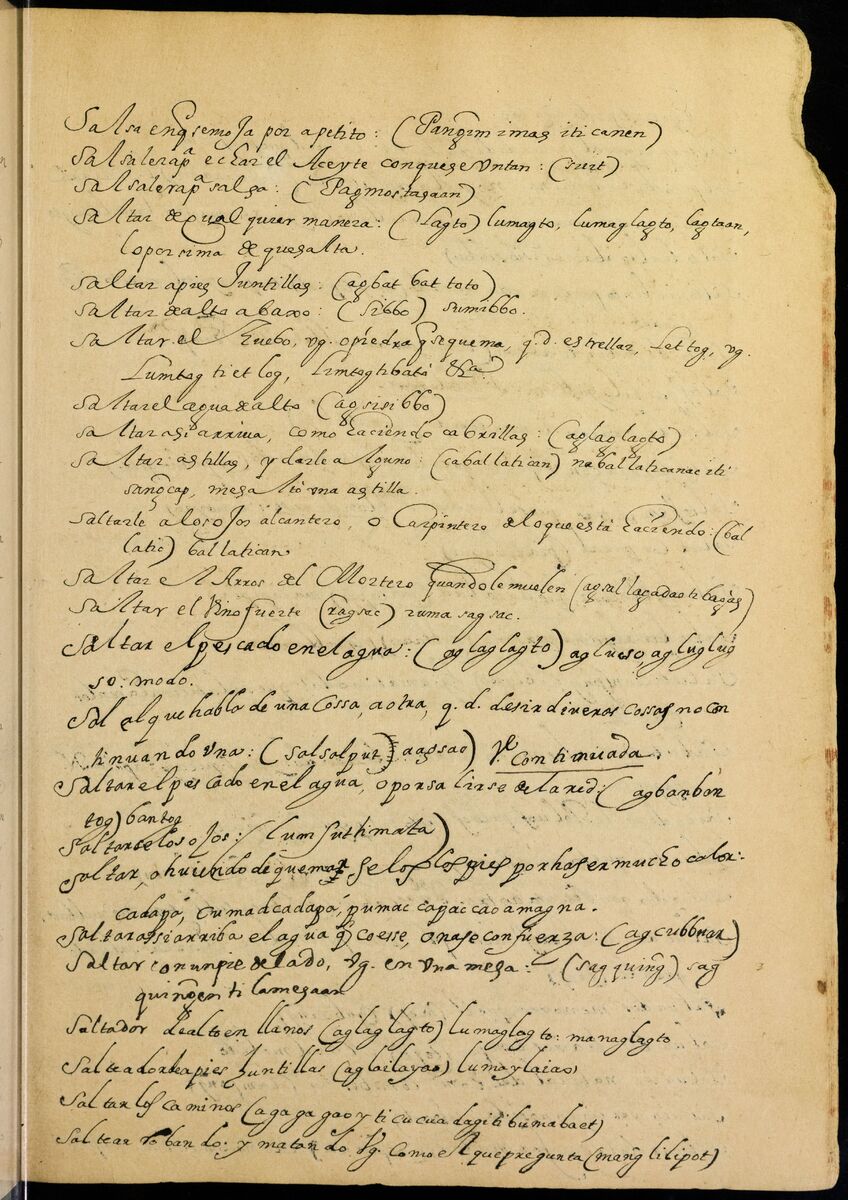 Salsa enq̃ semoJa por apetito: (Pang̃im imas iti canen)
Salsalerap.ª echar el Aceyte conquese vntan: (suit)
Salsalerap.ª salsa: (Pagmostasaan)
Saltar de qual quier manera: (Lagto) lumagto, lumaglagto, lagtaan,
lo por sima de quesalta.
Saltar apies Juntillas: (agbat bat toto)
Saltar de alto abaxo: (sibbo) sumibbo.
Saltar el huebo, vg. o piedra q̃ sequema, q. d. estrellar, Lettog, vg.
Lumtog ti et log, limtog ti bató &ª
Saltar el agua de alto (agsisibbo)
Saltar asi arriva, como haciendo cabrillas: (aglaglagto)
Saltar astillas, y darle alguno: (caballatican) naballaticanac iti
sang̃cap, mesaltó vna astilla.
Saltarle alos oJos alcantero, o Carpintero de lo que está haciendo: (bal
latic) ballatican
Saltar el Arros del Mortero quando le muelen (agsallagadao ti bagas)
Saltar el Vino fuerte (ragsac) rumasagsac.
Saltar el pescado en el agua: (aglaglagto) aglucso, agluglug
so: modo.
Sal al que habla de una cossa, a otra, q. d. desir diversas cossas no con
tinuando vna: (salsalput, aagsao) V.e continuada.
Saltar el pescado en el agua, o por salirse de la red: (agbanbón
tog) bantog
Saltarse los oJos: (lumsut ti mata)
Saltar, o huiendo de quemarse los pies por haser mucho calor:
cadapá, cumadcadapá, pumaccapaccao a magna.
Saltar assi arriba el agua q̃ coese, o nase con fuerza: (agcubbuar)
Saltar con un pie de lado, vg. en vna mesa: (sagquing̃) sag
quing̃en ti lamesaan
Saltador de alto en llanos (aglaglagto) lumaglagto: managlagto
Salteador de apies Juntillas (aglailayao) lumaylaiao
Saltar los caminos (agagagao y ti cucua dagiti bumabaet)
Saltear robando: y matando Vg. como el que pregunta (mang̃lilipot)